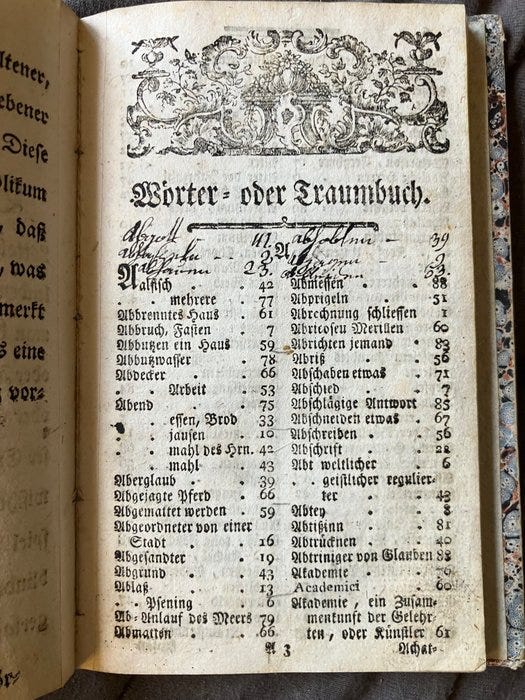 ltener,
ebener
Diese
likum
, daß
, was
merkt
s eine
vor-
Wörter- oder Traumbuch.
Abgott 41
2
23
A
Aalfisch . 42
. . mehrere . 77
Abbrenntes Haus 61
Abbruch, Fasten . 7
Abbutzen ein Haus 59
Abbutzwasser . 78
Abdecker . . 66
. . Arbeit . 53
Abend . . 75
. . essen, Brod 33
. . jausen . 10
. . mahl des Hrn. 42
. . mahl . 43
Aberglaub . . 39
Abgejagte Pferd . 66
Abgemattet werden . 59
Abgeordneter von einer
Stadt . . 16
Abgesandter . 19
Abgrund . . 43
Ablaß . . 13
. . Psening . 6
Ab- Anlauf des Meers 79
Abmatten . . 66
abholen - 39
2
53
Abmessen . . 88
Abprigeln . . 51
Abrechnung schliessen 1
Abricosen Merillen 60
Abrichten jemand . 83
Abriß . . 56
Abschaben etwas . 71
Abschied . . 7
Abschlägige Antwort 85
Abschneiden etwas . 67
Abschreiben . . 56
Abschrift . . 22
Abt weltlicher . 6
. . geistlicher regulier-
ter . . 43
Abtey . . 8
Abtißinn . . 81
Abtrücknen . . 40
Abtriniger von Glauben 88
Akademie . . 76
Academici . 60
Akademie, ein Zusam-
mentunft der Gelehr-
ten, oder Künstler 61
A 3
Achat-